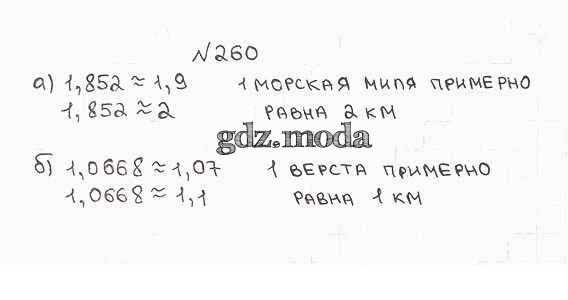 №260
а) 1,852 ≈ 1,9 1 морская миля примерно
1,852 ≈ 2 равна 2 км
gdz.moda
б) 1,0668 ≈ 1,07 1 верста примерно
1,0668 ≈ 1,1 равна 1 км